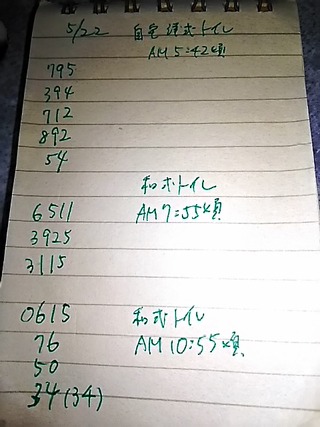 5/22 自宅洋式トイレ
AM5:42頃
795
394
712
892
54
和式トイレ
6511 AM7:55頃
3925
3115
0615 和式トイレ
76 AM10:55頃
50
34(34)